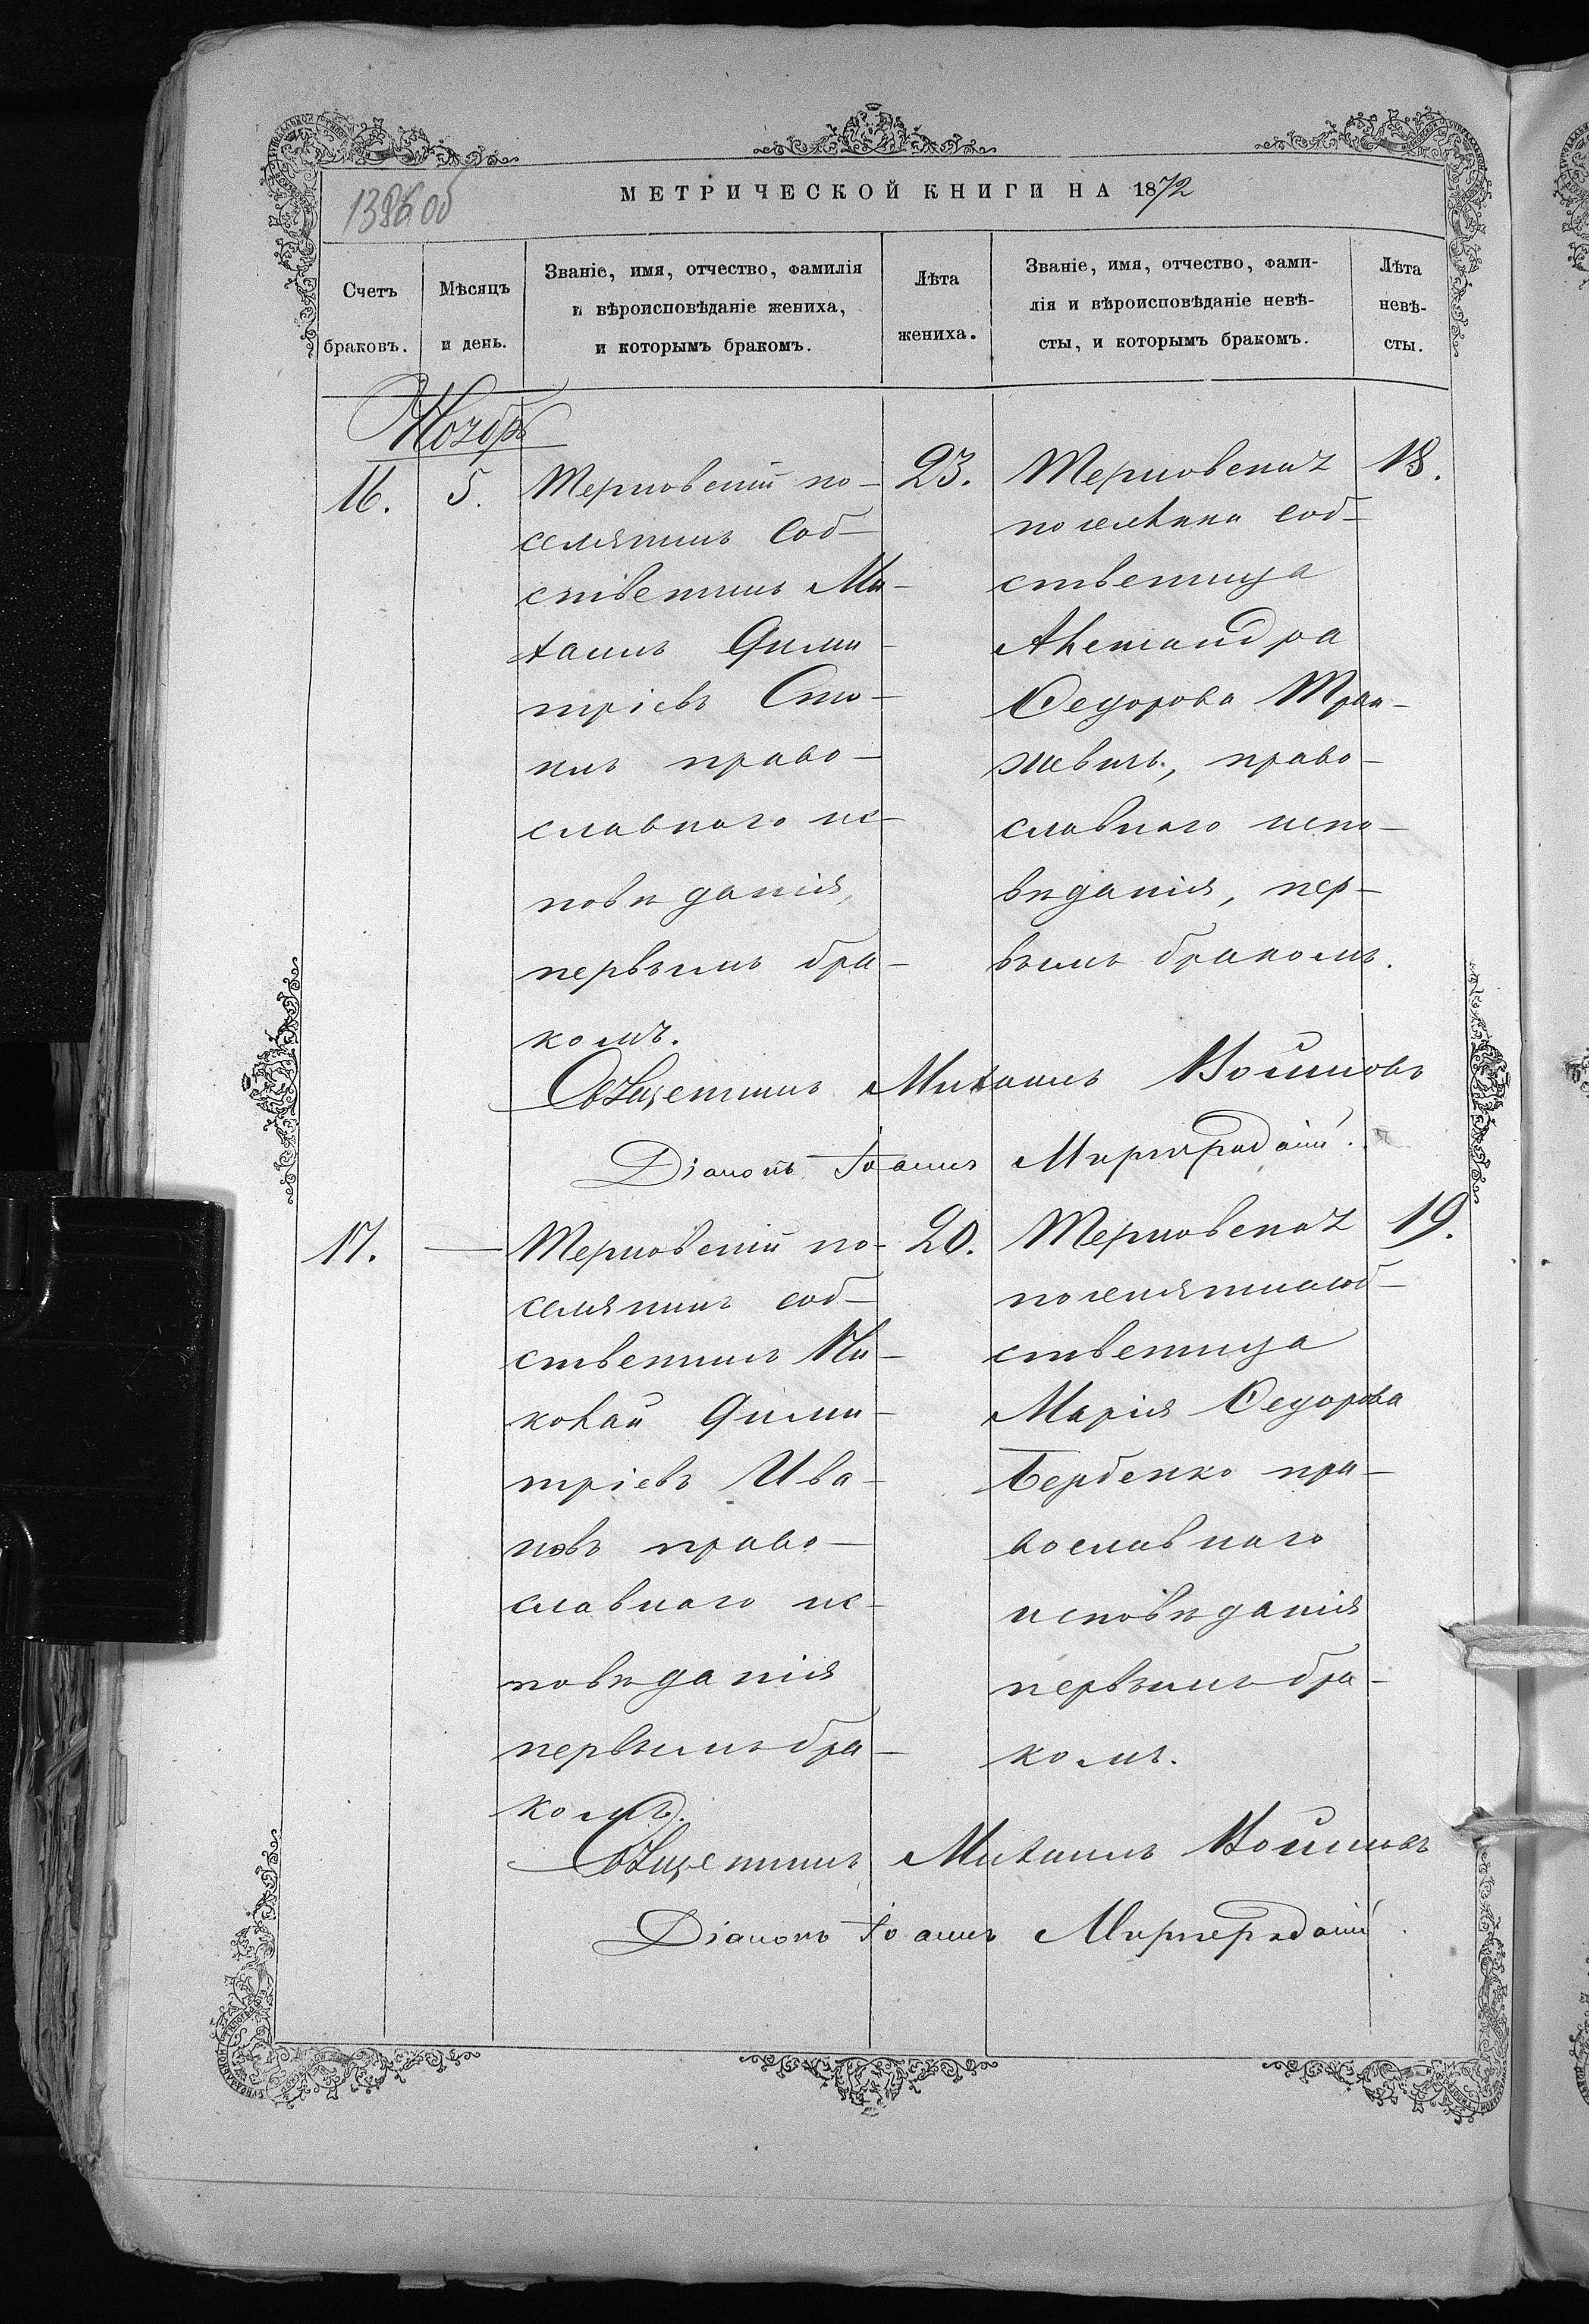 1386.об
МЕТРИЧЕСКОЙ КНИГИ НА 1872
Счетъ браковъ.
Мѣсяцъ и день.
Званіе, имя, отчество, фамилія
и вѣроисповѣданіе жениха,
и которымъ бракомъ.
Лѣта жениха.
Званіе, имя, отчество, фами-
лія и вѣроисповѣданіе невѣ-
сты, и которымъ бракомъ.
Лѣта невѣ-
сты.
Ноябрь
16.
5.
Терновскій по-
селянинъ соб-
ственникъ Ми-
хаилъ Дими-
тріевъ
православнаго ис-
повѣданія,
первымъ бра-
комъ.
23.
Терновская
поселянка соб-
ственница
Александра
Ѳедорова
право-
славнаго испо-
вѣданія, пер-
вымъ бракомъ.
18.
Священникъ Михаилъ Войновъ
Діаконъ Іоаннъ Миргородскій.
17.
—
Терновскій по-
селянинъ соб-
ственникъ Ни-
колай Дими-
тріевъ Ива-
новъ право-
славнаго ис-
повѣданія
первымъ бра-
комъ.
20.
Терновская
поселянка соб-
ственница
Марія Ѳедорова
Бербенко пра-
вославнаго
исповѣданія
первымъ бра-
комъ.
19.
Священникъ Михаилъ Войновъ
Діаконъ Іоаннъ Миргородскій